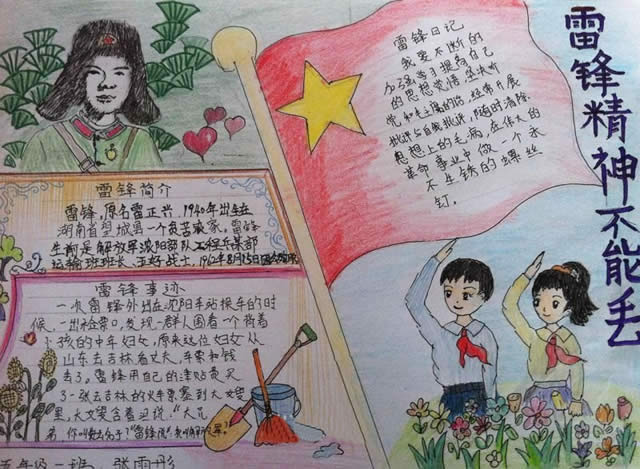 雷锋精神不能丢
雷锋日记
我要不断的
加强学习提高自己
的思想觉悟,坚决听
党和毛主席的话,经常开展
批评与自我批评,随时清除
思想上的毛病,在伟大的
革命事业中做一个永
不生锈的螺丝
钉.
雷锋简介
雷锋,原名雷正兴.1940年出生在
湖南省望城县一个贫苦农家.雷锋
生前是解放军沈阳部队工程兵某部
运输班班长,五好战士,1962年8月15日
雷锋事迹
一次雷锋外出在沈阳车站换车的时
候,一出检票口,发现一群人围着一个背着
小孩的中年妇女,原来这位妇女从
山东去吉林看丈夫,车票和钱
丢了.雷锋用自己的津贴费买
了一张去吉林的火车票塞到大嫂
里,大嫂含着泪说:“大兄
弟,你叫
五年级一班 张雨彤